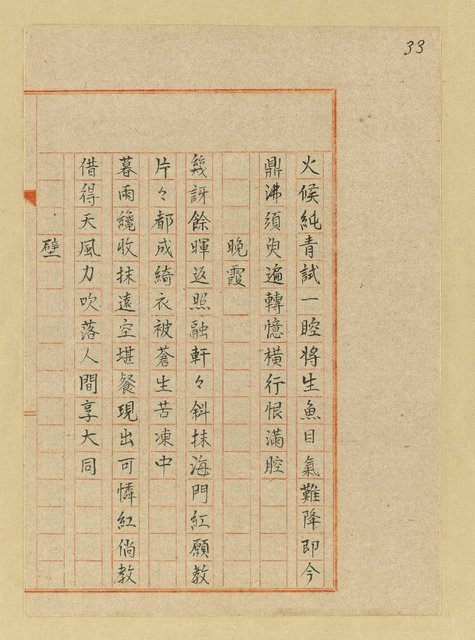 33
火候純青試一腔将生魚目氣難降即今
鼎沸須臾遍轉憶橫行恨滿腔
晚霞
幾訝餘暉返照融軒々斜抹海門紅願教
片々都成綺衣被蒼生苦凍中
暮雨纔收抹遠空堪餐現出可憐紅倘教
借得天風力吹落人間享大同
壁